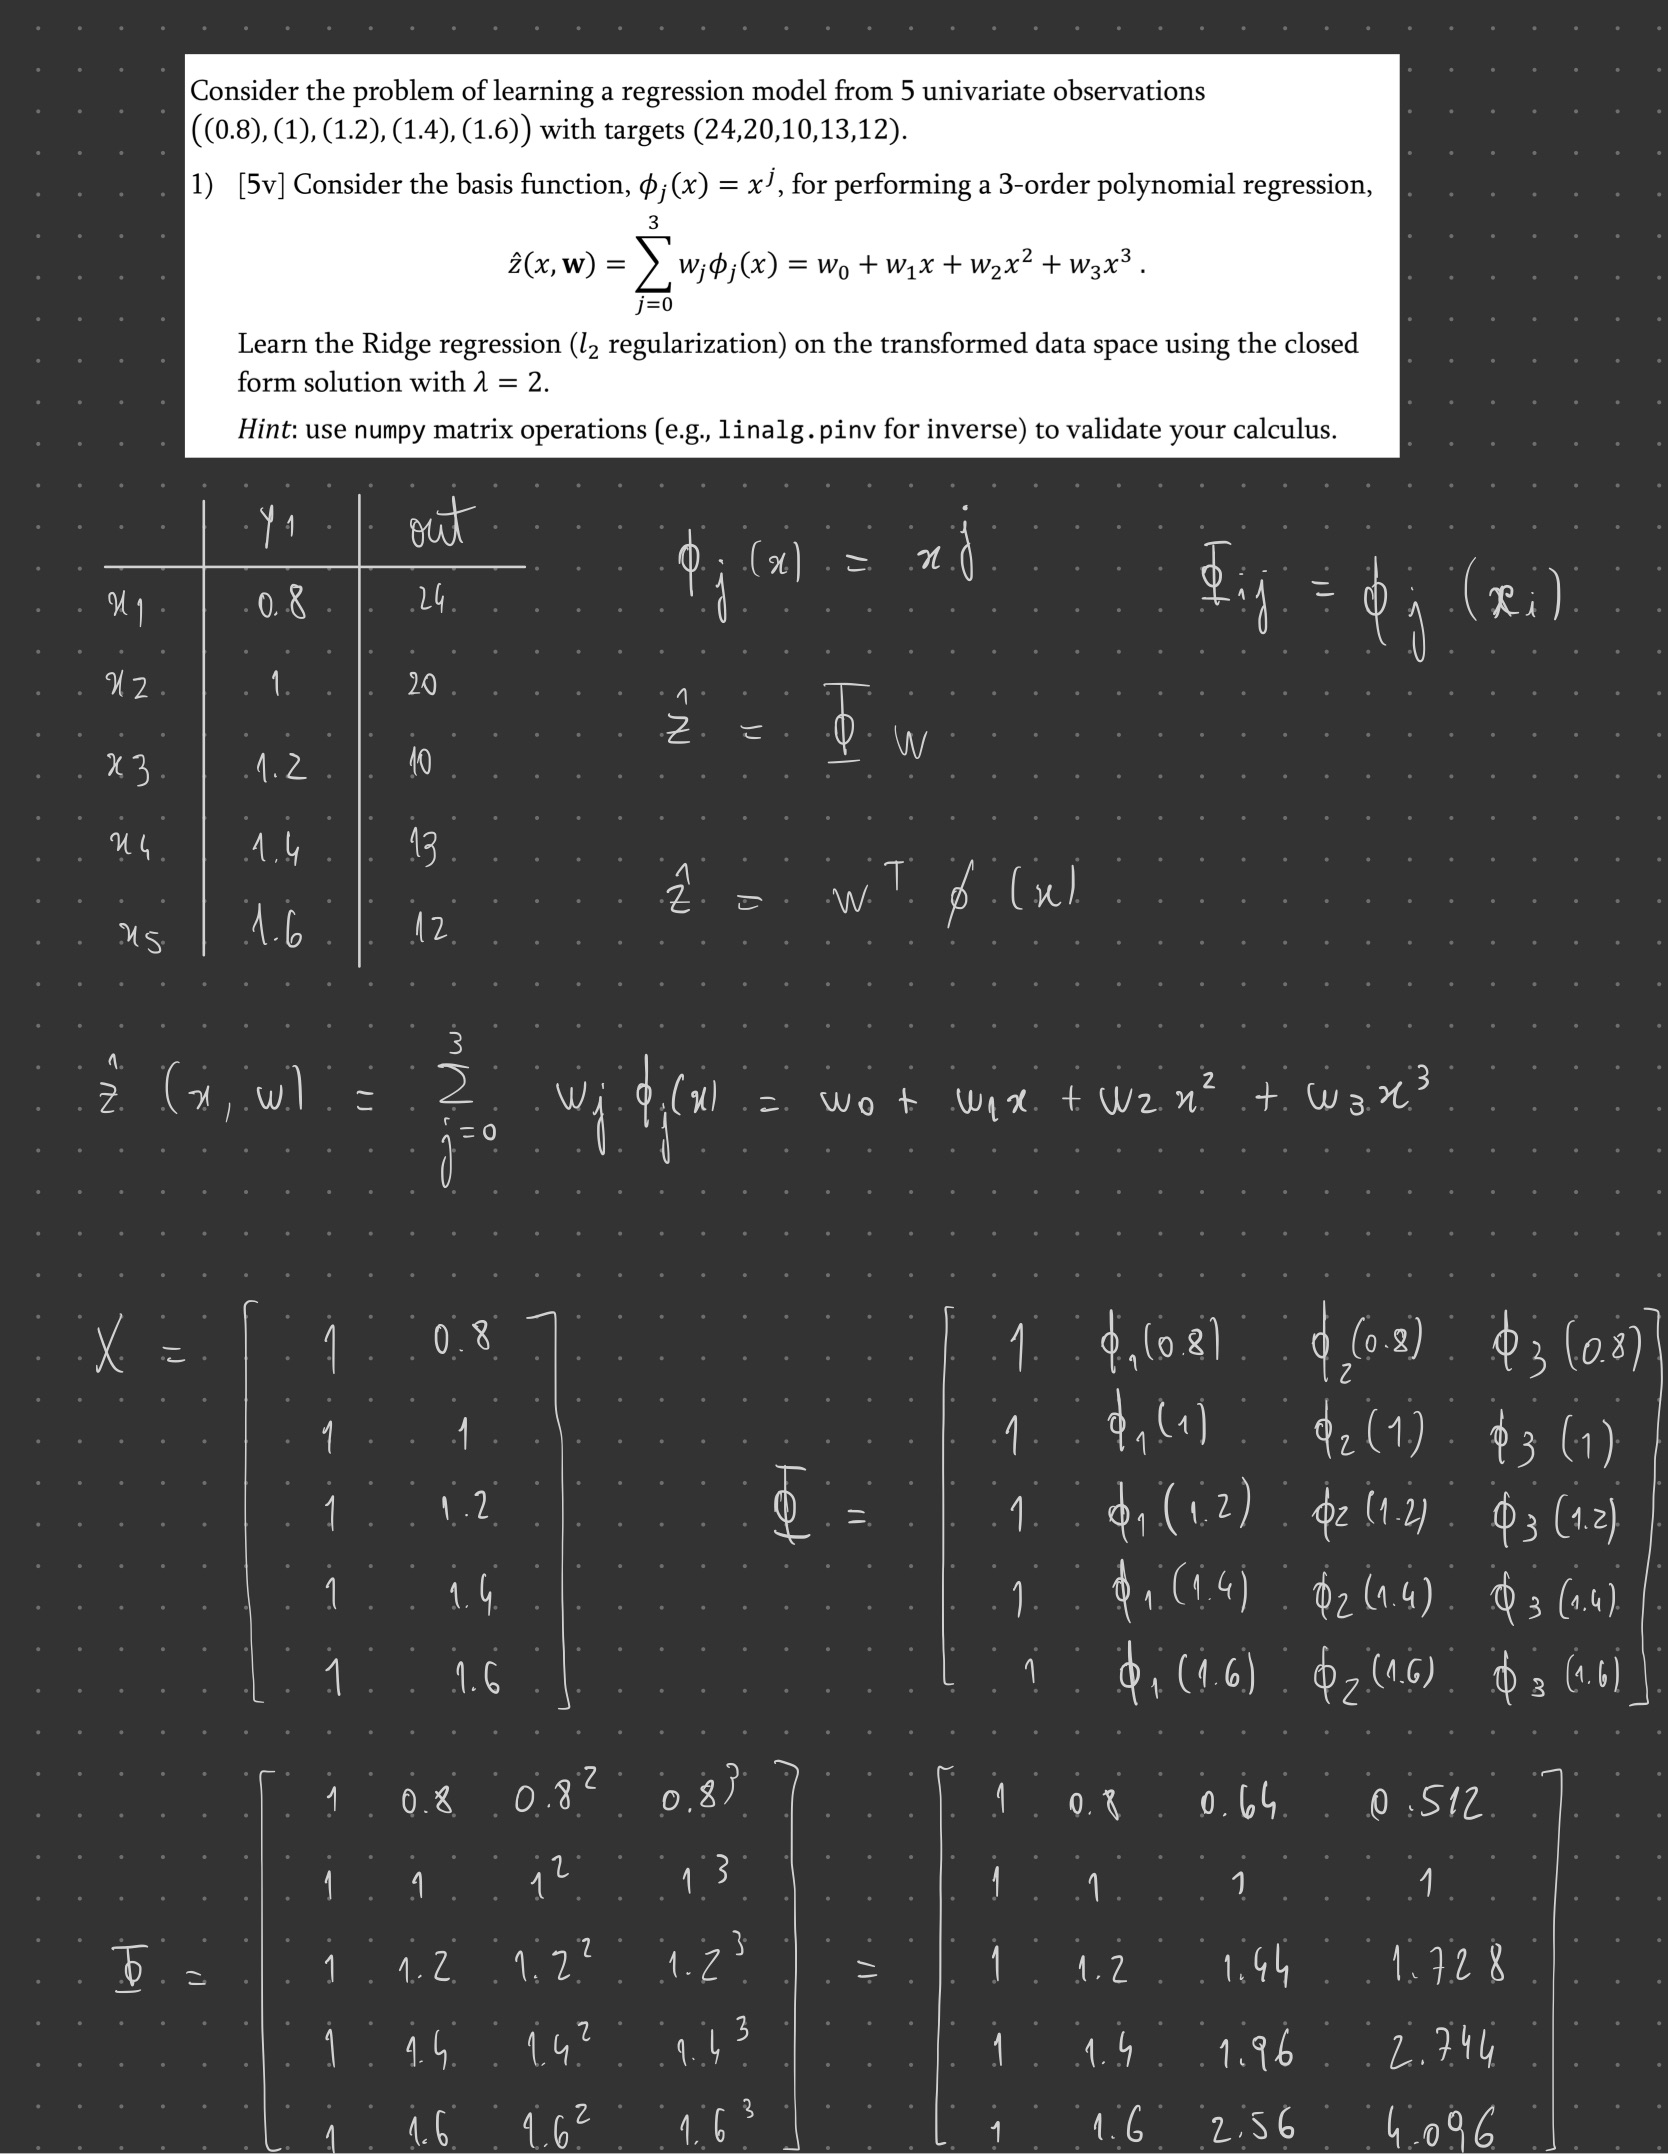 Consider the problem of learning a regression model from 5 univariate observations
((0.8), (1), (1.2), (1.4), (1.6)) with targets (24,20,10,13,12).
1) [5v] Consider the basis function, ϕⱼ(x) = xʲ, for performing a 3-order polynomial regression,
ẑ(x, w) = ∑_{j=0}^{3} wⱼϕⱼ(x) = w₀ + w₁x + w₂x² + w₃x³ .
Learn the Ridge regression (l₂ regularization) on the transformed data space using the closed
form solution with λ = 2.
Hint: use numpy matrix operations (e.g., linalg.pinv for inverse) to validate your calculus.
y₁ out
x₁ 0.8 24
x₂ 1 20
x₃ 1.2 10
x₄ 1.4 13
x₅ 1.6 12
ϕⱼ(x) = xʲ
Φᵢⱼ = ϕⱼ(xᵢ)
ẑ = Φ w
ẑ = wᵀ ϕ(x)
ẑ (x, w) = ∑_{j=0}^{3} wⱼ ϕⱼ(x) = w₀ + w₁x + w₂x² + w₃x³
X =
1 0.8
1 1
1 1.2
1 1.4
1 1.6
Φ =
1 ϕ₁(0.8) ϕ₂(0.8) ϕ₃(0.8)
1 ϕ₁(1) ϕ₂(1) ϕ₃(1)
1 ϕ₁(1.2) ϕ₂(1.2) ϕ₃(1.2)
1 ϕ₁(1.4) ϕ₂(1.4) ϕ₃(1.4)
1 ϕ₁(1.6) ϕ₂(1.6) ϕ₃(1.6)
Φ =
1 0.8 0.8² 0.8³
1 1 1² 1³
1 1.2 1.2² 1.2³
1 1.4 1.4² 1.4³
1 1.6 1.6² 1.6³
=
1 0.8 0.64 0.512
1 1 1 1
1 1.2 1.44 1.728
1 1.4 1.96 2.744
1 1.6 2.56 4.096